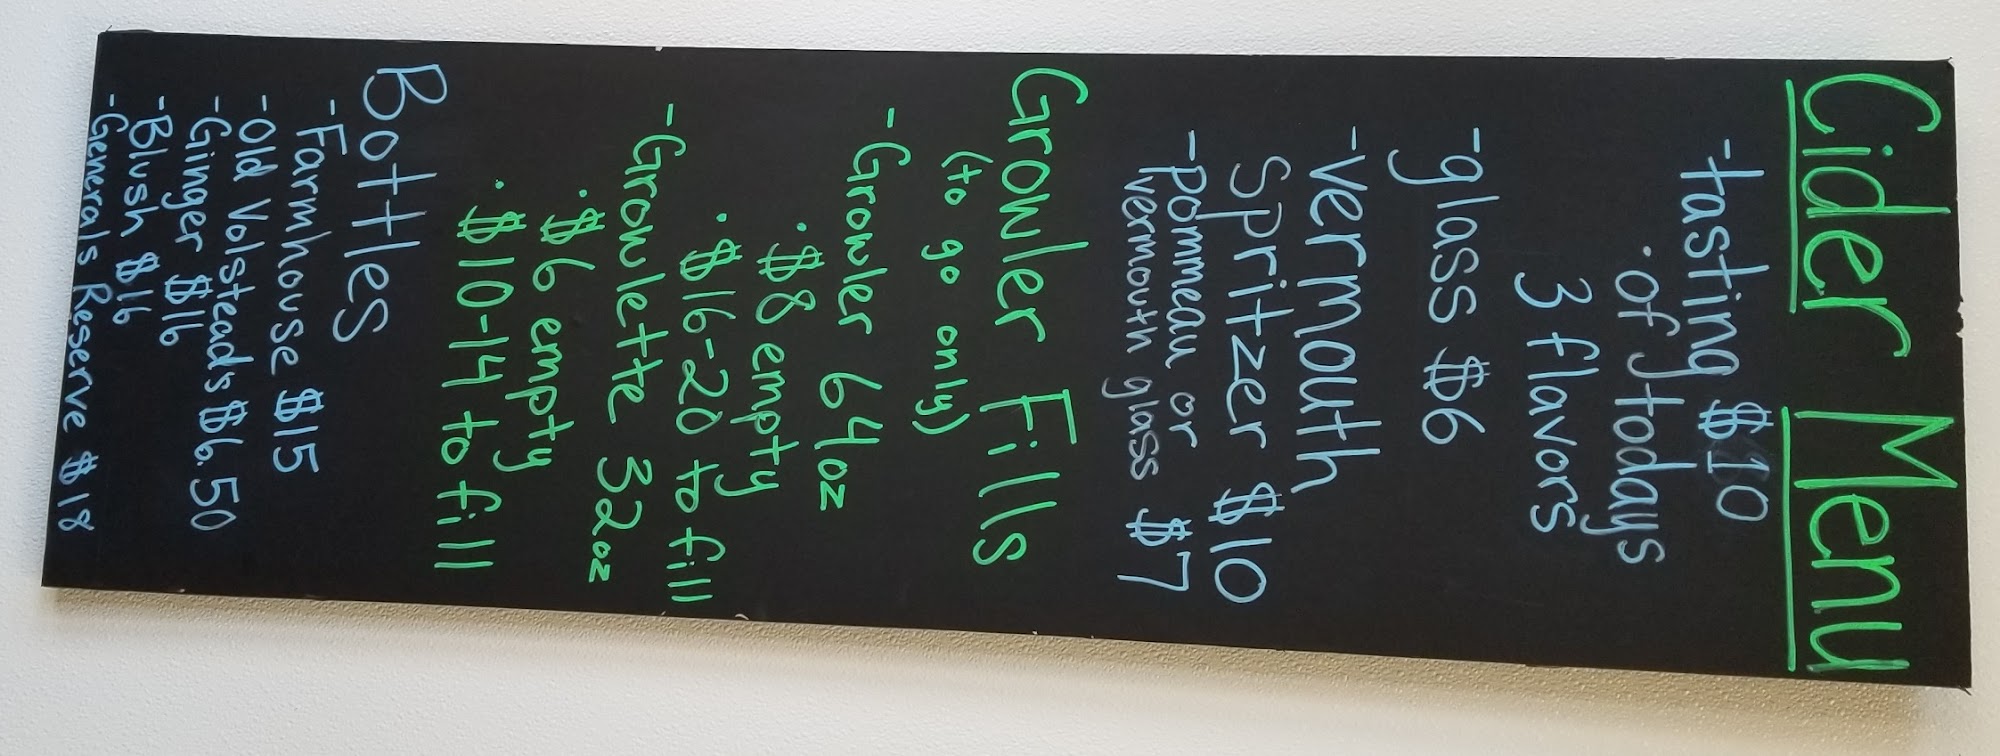 Cider Menu
-tasting $10
·of todays
3 flavors
-glass $6
-vermouth
Spritzer $10
-pommeau or
vermouth glass $7
Growler Fills
(to go only)
-Growler 64oz
·$8 empty
·$16-20 to fill
-Growlette 32oz
·$6 empty
·$10-14 to fill
Bottles
-Farmhouse $15
-Old Volsteads $6.50
-Ginger $16
-Blush $16
-Generals Reserve $18